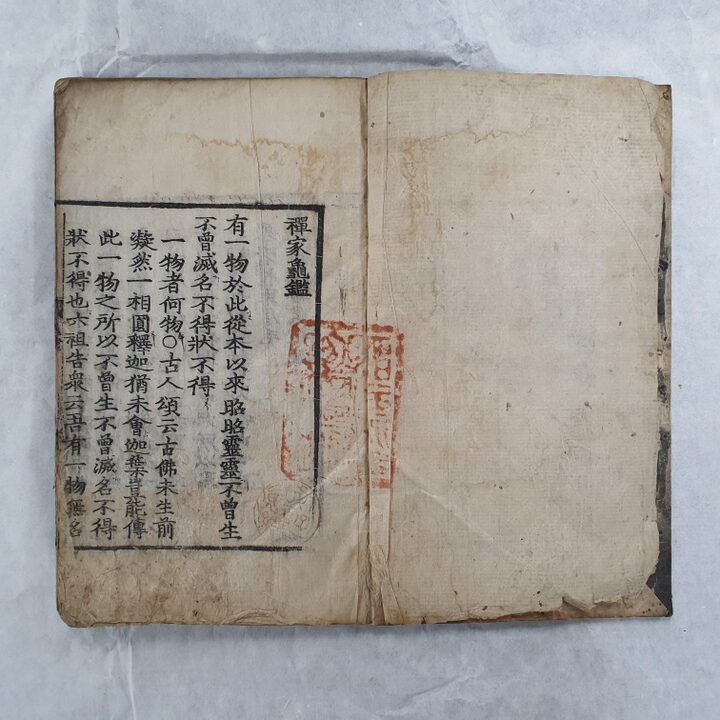 禪家龜鑑
有一物於此從本以來昭昭靈靈不曾生
不曾滅名不得狀不得
一物者何物〇古人頌云古佛未生前
凝然一相圓釋迦猶未會迦葉豈能傳
此一物之所以不曾生不曾滅名不得
狀不得也六祖告衆云吾有一物無名